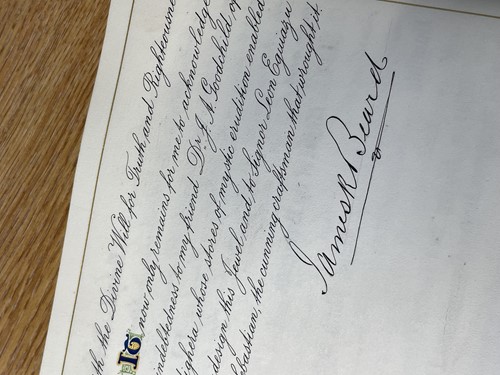 ith the Divine Will for Truth and Righteousne
It now only remains for me to acknowledge
indebtedness to my friend Dr. J. A. Goodchild, of
ighera, whose stores of mystic erudition enabled
design this Jewel, and to Signor Leon Eguiazu
bastian, the cunning craftsman that wrought it.
James R Beard